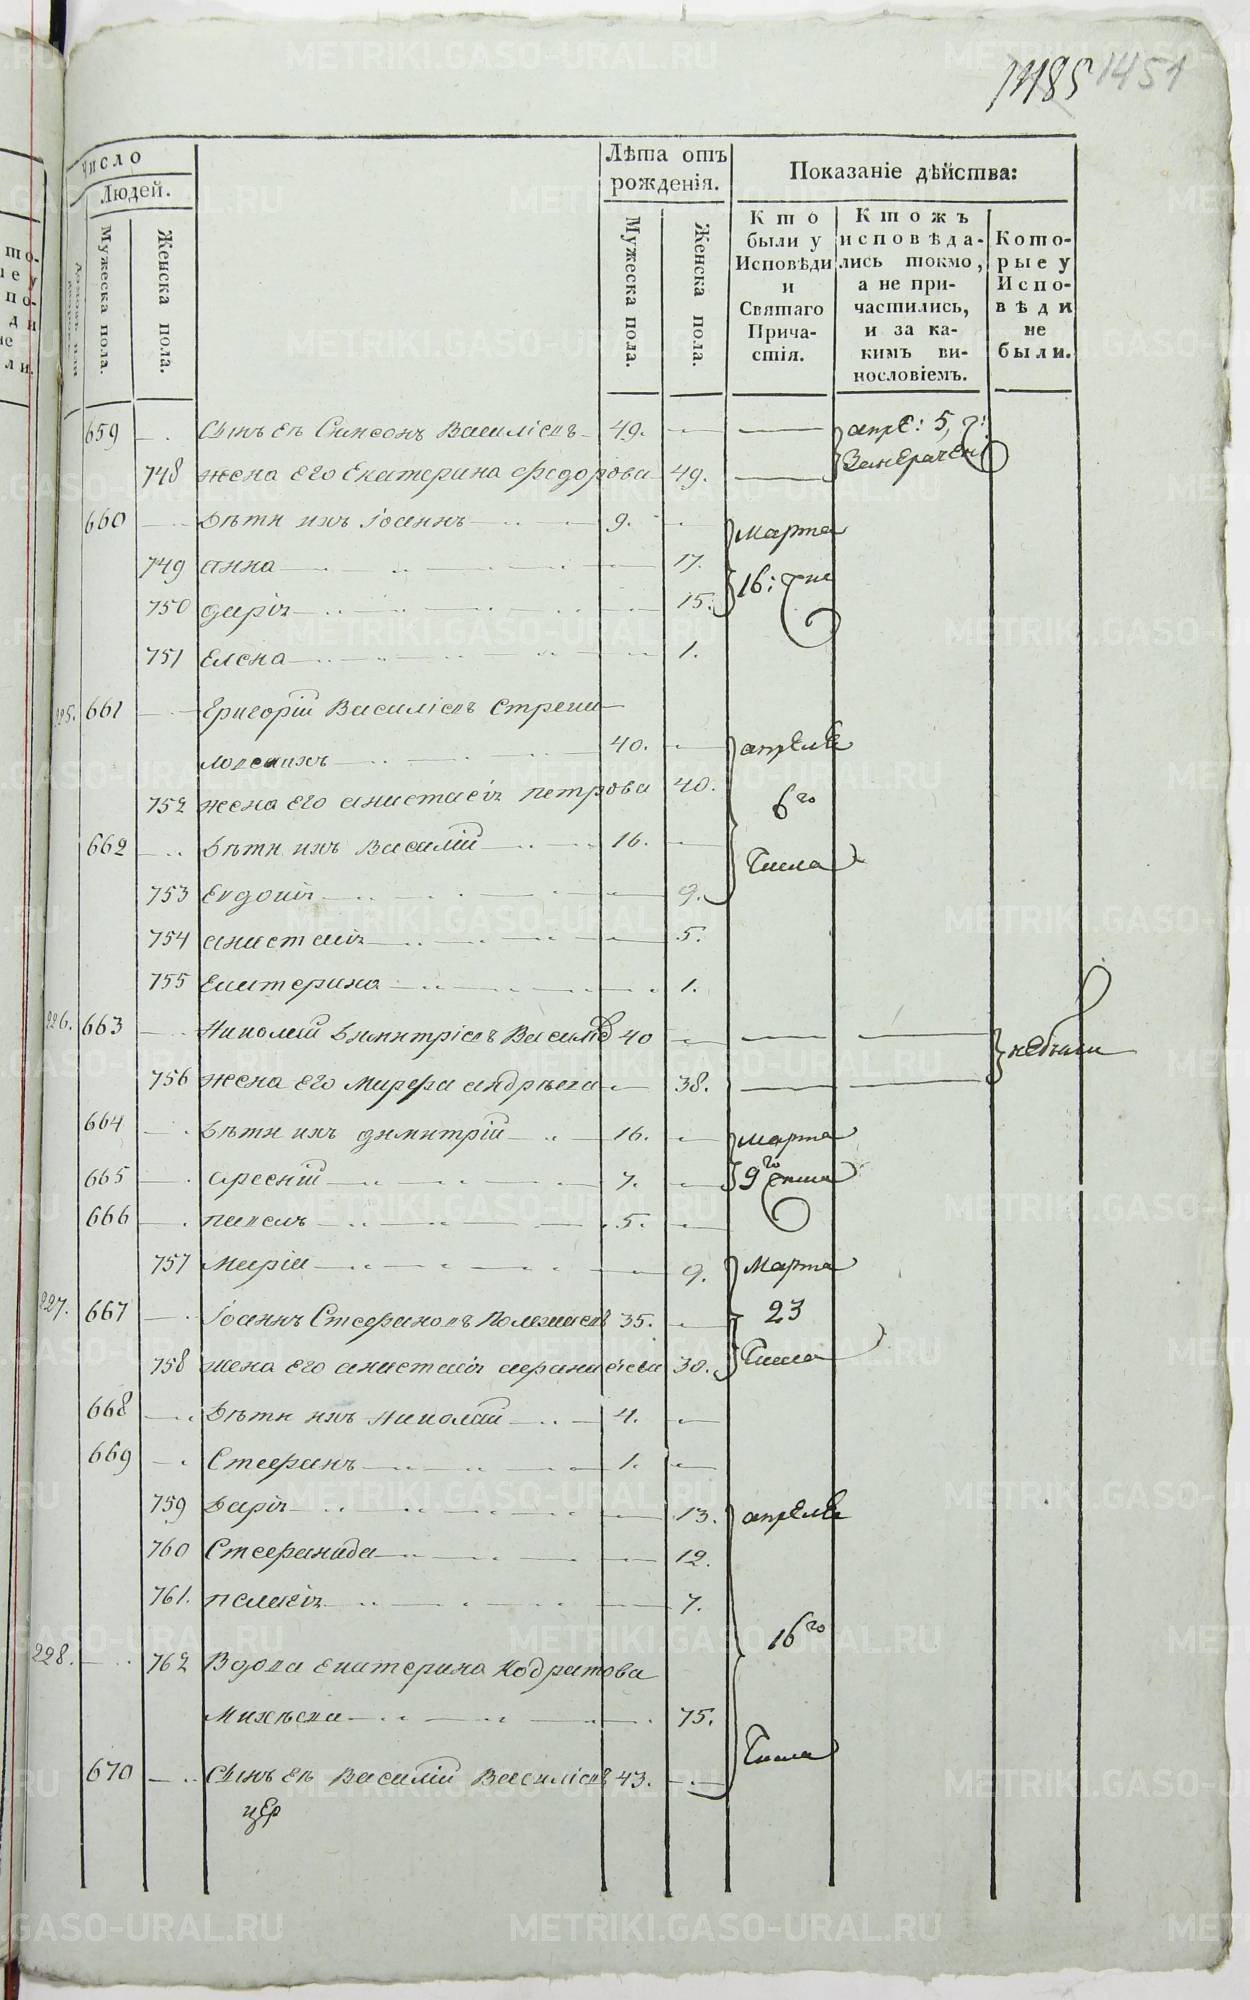 1185 1451
Число
Людей.
Мужеска пола.
Женска пола.
Лѣта отъ рожденія.
Мужеска пола.
Женска пола.
Показаніе дѣйства:
Кто были у Исповѣди и Святаго Причастія.
Ктожъ исповѣдались токмо, а не причастились, и за какимъ винословіемъ.
Которые у Исповѣди не были.
659 Сынъ ея Симеонъ Василіевъ 49. апре: 5,
748 жена его Екатерина Федорова 49.
660 Дѣти ихъ Іоаннъ 9. Марта
749 анна 17. 16:
750 дарія 15.
751 Елена 1.
225. 661 Григорій Василіевъ
40. апреля
752 жена его анастасія петрова 40. 6го
662 Дѣти ихъ Василій 16. Числа
753 Евдокія 9.
754 анастасія 5.
755 Екатерина 1.
226. 663 Николай Димитріевъ 40 небыли
756 жена его Марфа андрѣева 38.
664 Дѣти ихъ димитрій 16. Марта
665 арсеній 7. 9го числа
666 павелъ 5.
757 Марія 9. Марта
227. 667 Іоаннъ Стефановъ 35. 23
758 жена его анастасія 30. Числа
668 Дѣти ихъ николай 4.
669 Стефанъ 1.
759 Дарія 13. апреля
760 Стефанида 12.
761. пелагія 7.
16го
228. 762 Вдова екатерина Кодратова
Михѣева 75.
Числа
670 Сынъ ея Василій Василіевъ 43.